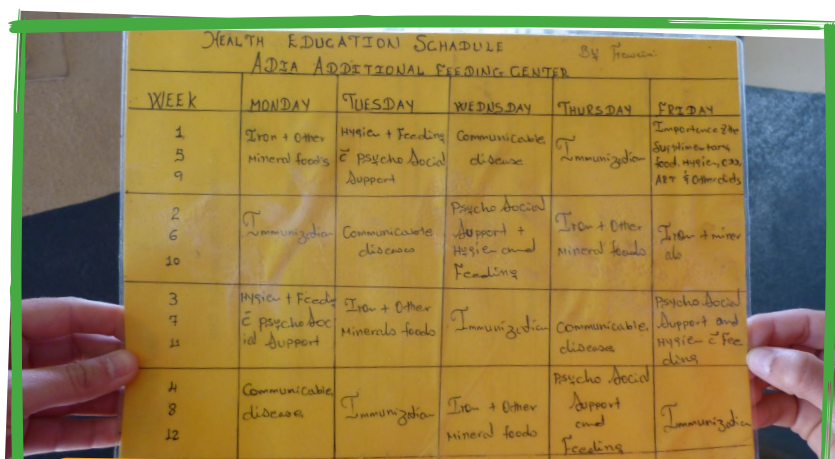 HEALTH EDUCATION SCHADULE
By
ADIA ADDITIONAL FEEDING CENTER
WEEK MONDAY TUESDAY WEDNSDAY THURSDAY FRIDAY
1
5
9
Iron + Other
Mineral foods
Hygien + Feeding
c̄ Psycho Social
Support
Communicable
disease
Immunization
Importance of the
Supplimentary
food, Hygien,
ART & Other diets
2
6
10
Immunization
Communicable
diseases
Psycho Social
Support +
Hygien and
Feeding
Iron + Other
Mineral foods
Iron + miner
als
3
7
11
Hygien + Feedi
c̄ Psycho Soc
ial Support
Iron + Other
Minerals foods
Immunization
Communicable
diseases
Psycho Social
Support and
Hygien c̄ Fee
ding
4
8
12
Communicable
diseases
Immunization
Iron + Other
Mineral foods
Psycho Social
Support
and
Feeding
Immunization